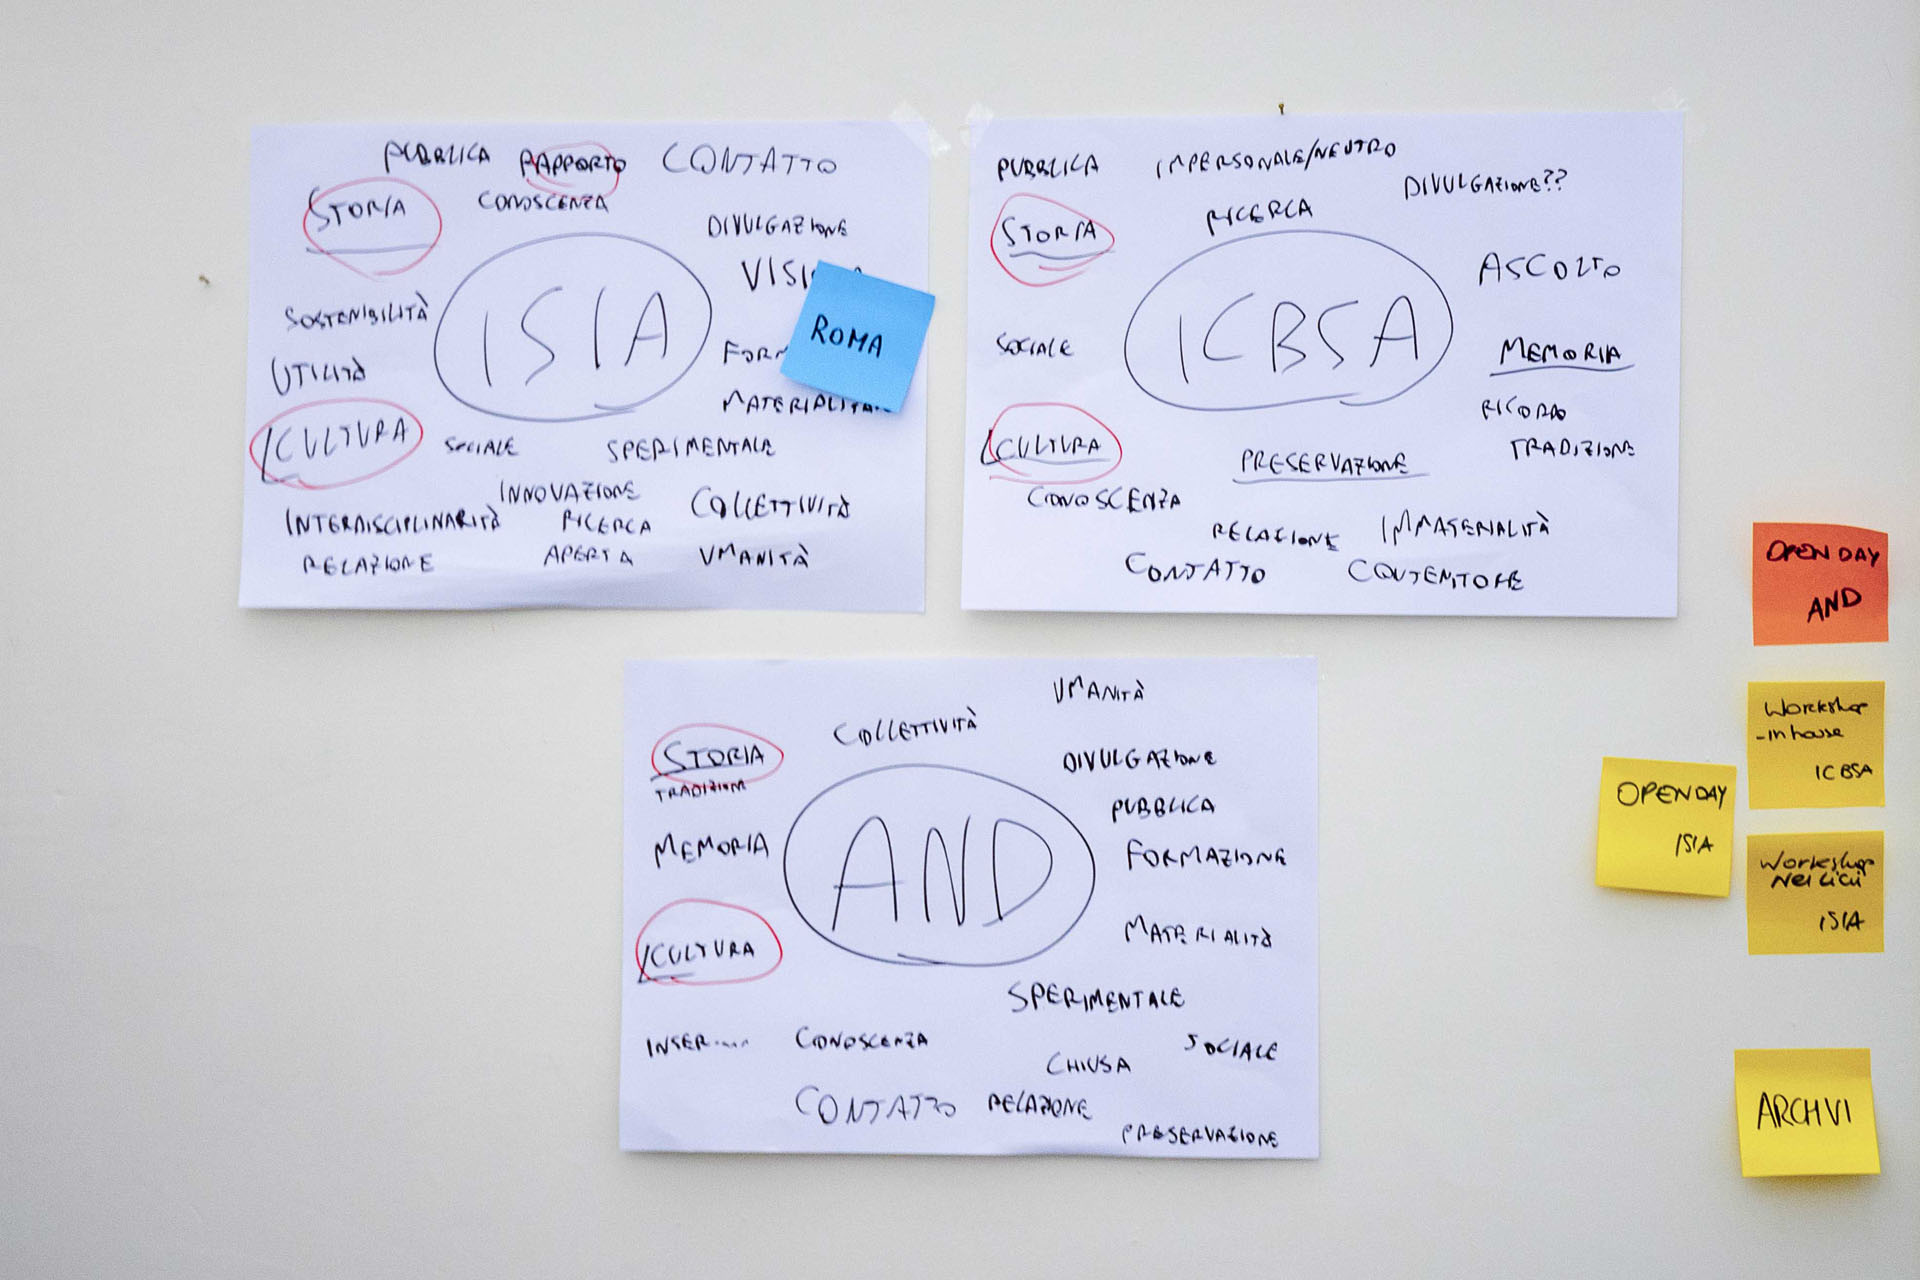 PUBBLICA RAPPORTO CONTATTO
STORIA
CONOSCENZA
DIVULGAZIONE
ISIA
ROMA
SOSTENIBILITÀ
UTILITÀ
CULTURA
SOCIALE
SPERIMENTALE
INNOVAZIONE
INTERDISCIPLINARITÀ
RICERCA
COLLETTIVITÀ
RELAZIONE
APERTA
UMANITÀ
PUBBLICA
IMPERSONALE/NEUTRO
DIVULGAZIONE??
RICERCA
STORIA
ASCOLTO
ICBSA
SOCIALE
MEMORIA
RICORDO
CULTURA
TRADIZIONE
PRESERVAZIONE
CONOSCENZA
RELAZIONE
IMMATERIALITÀ
CONTATTO
CONTENITORE
UMANITÀ
COLLETTIVITÀ
STORIA
TRADIZIONI
DIVULGAZIONE
PUBBLICA
MEMORIA
AND
FORMAZIONE
CULTURA
MATERIALITÀ
SPERIMENTALE
INSER....
CONOSCENZA
SOCIALE
CHIUSA
CONTATTO
RELAZIONE
PRESERVAZIONE
OPEN DAY
AND
Workshop
-in house
ICBSA
OPENDAY
ISIA
Workshop
Nei Licii
ISIA
ARCHVI